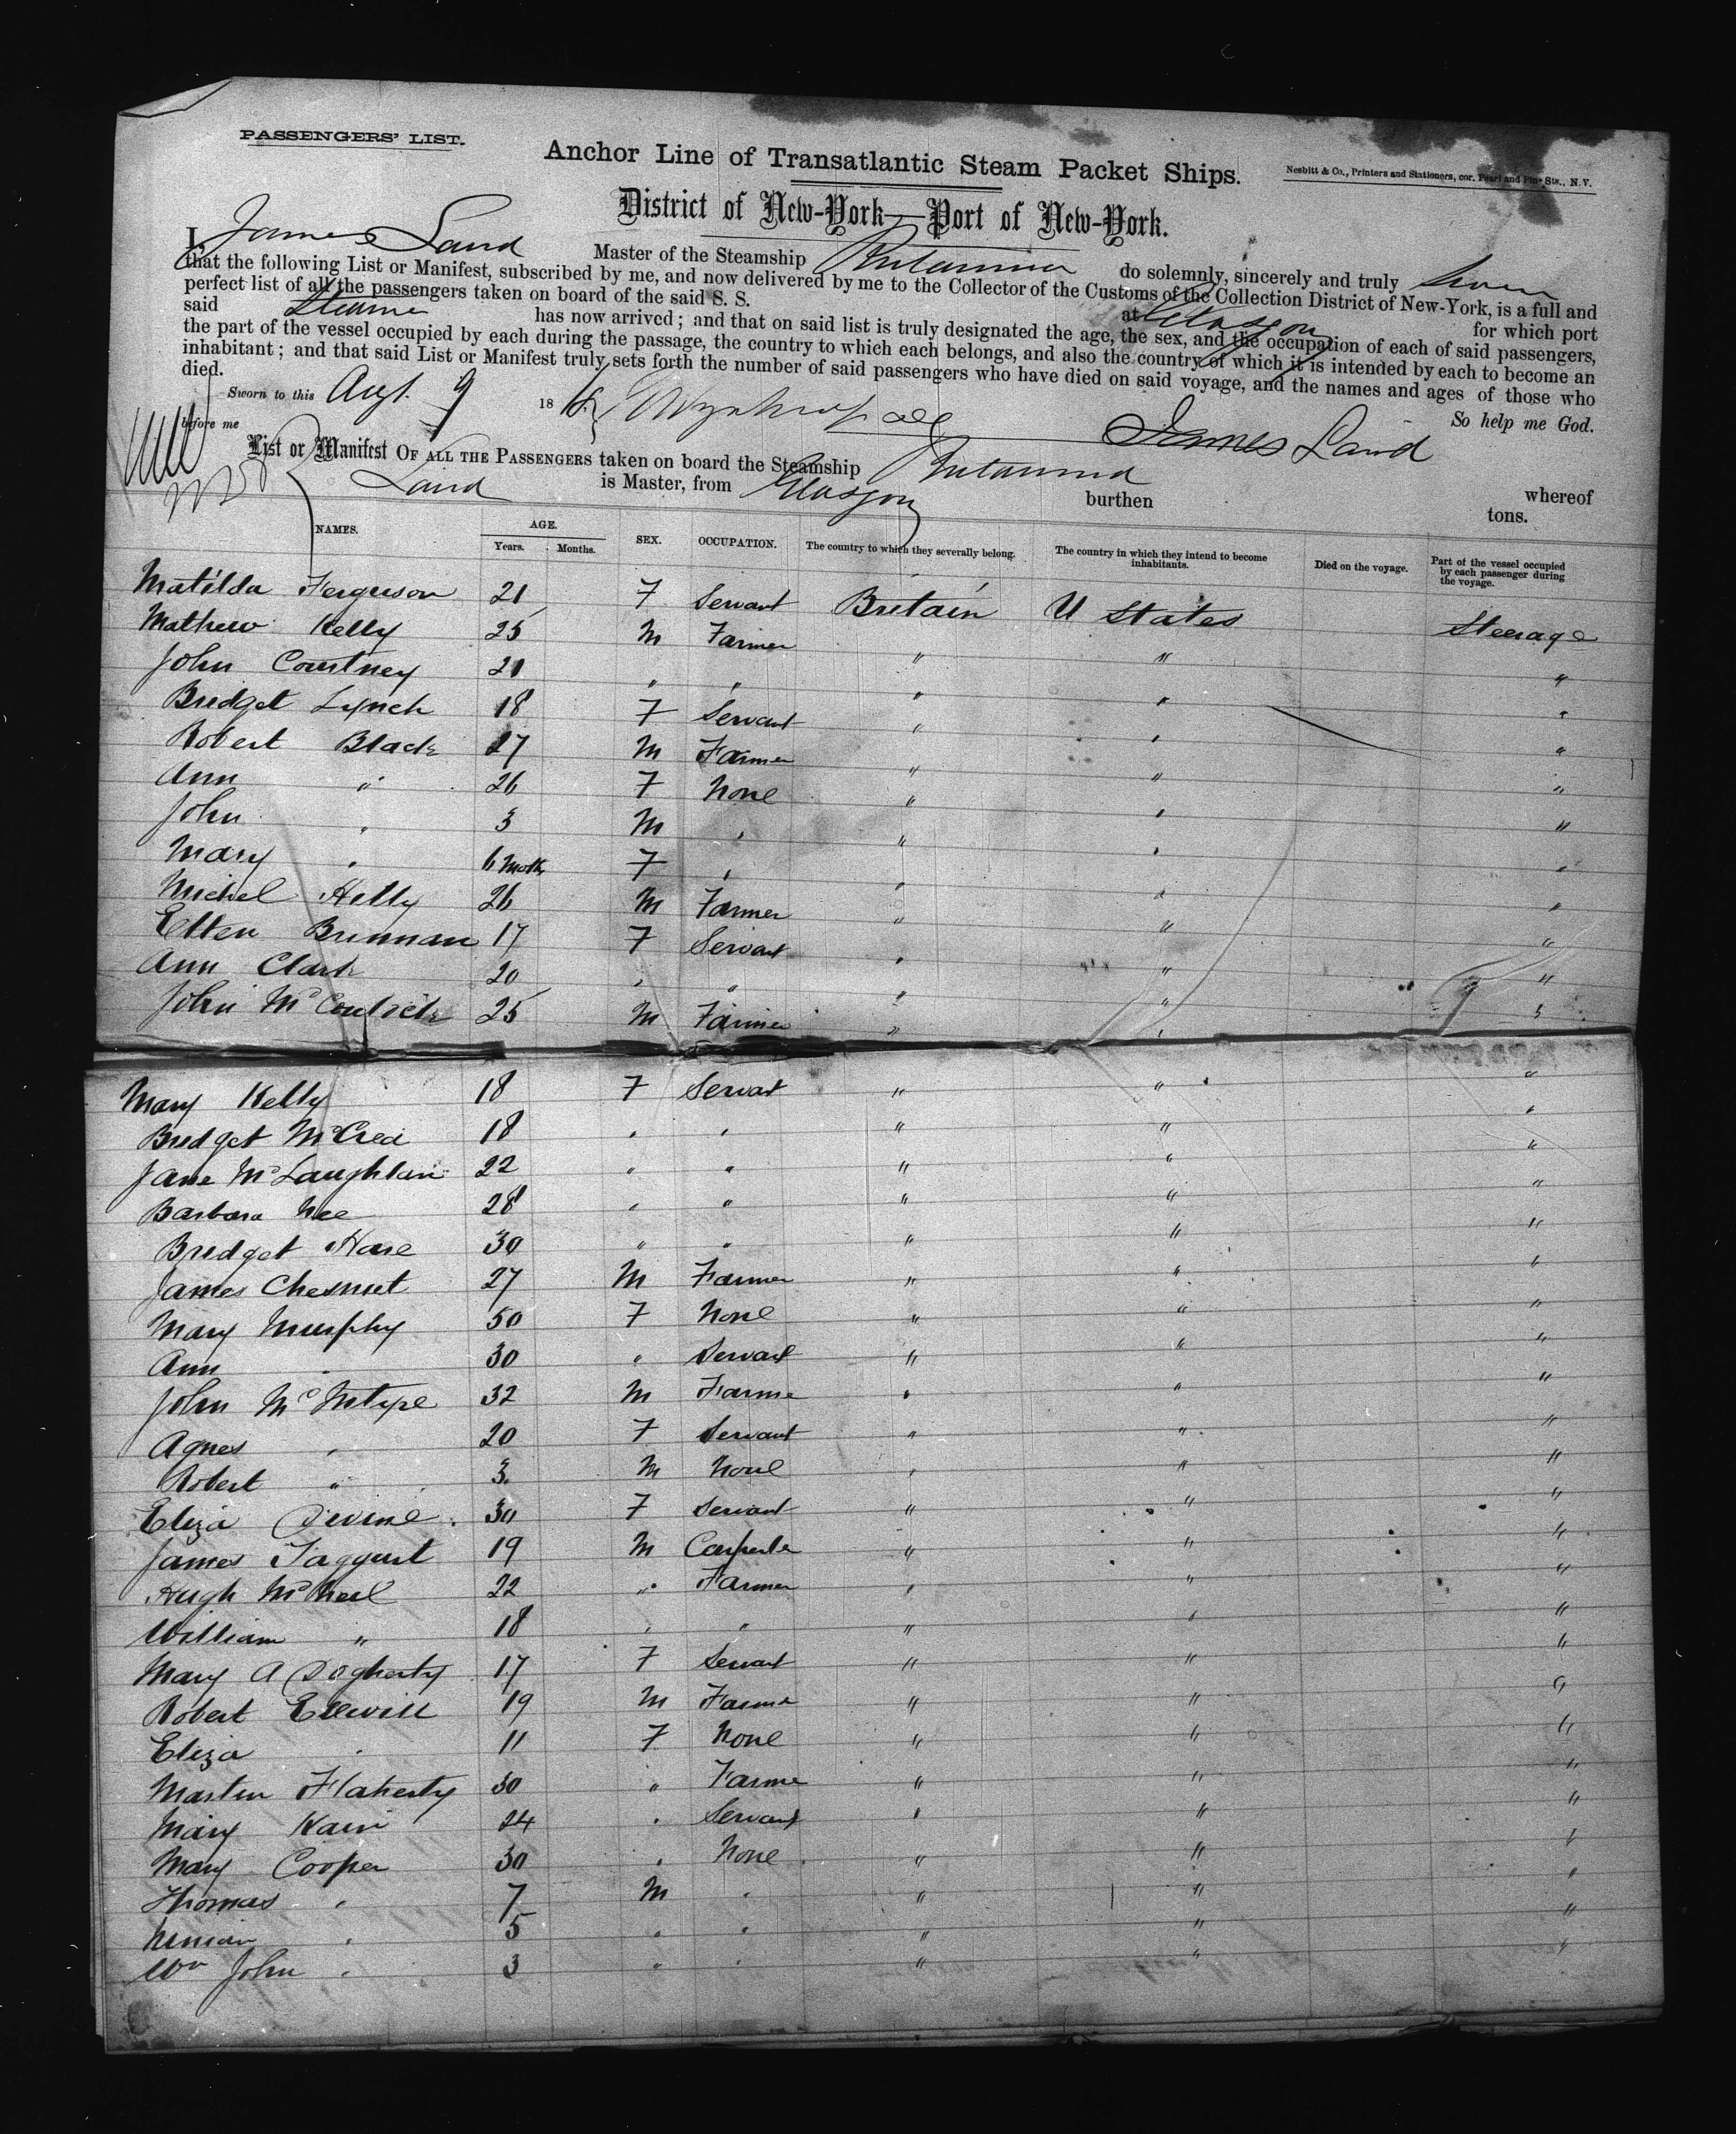 PASSENGERS' LIST.
Anchor Line of Transatlantic Steam Packet Ships.
Nesbitt & Co., Printers and Stationers, cor. Pearl and Pine Sts., N. Y.
District of New-York—Port of New-York.
I, James Laird Master of the Steamship Britannia do solemnly, sincerely and truly swear
that the following List or Manifest, subscribed by me, and now delivered by me to the Collector of the Customs of the Collection District of New-York, is a full and
perfect list of all the passengers taken on board of the said S. S. at Glasgow for which port
said Steamer has now arrived; and that on said list is truly designated the age, the sex, and the occupation of each of said passengers,
the part of the vessel occupied by each during the passage, the country to which each belongs, and also the country of which it is intended by each to become an
inhabitant; and that said List or Manifest truly sets forth the number of said passengers who have died on said voyage, and the names and ages of those who
died. So help me God.
Sworn to this Augt. 9 18
before me James Laird
List or Manifest OF ALL THE PASSENGERS taken on board the Steamship Britannia whereof
Laird is Master, from Glasgow burthen tons.
NAMES. AGE. Years. Months. SEX. OCCUPATION. The country to which they severally belong. The country in which they intend to become inhabitants. Died on the voyage. Part of the vessel occupied by each passenger during the voyage.
Matilda Ferguson 21 F Servant Britain U States Steerage
Mathew Kelly 25 M Farmer " " "
John Courtney 21 " " " " "
Bridget Lynch 18 F Servant " " "
Robert Black 27 M Farmer " " "
Ann " 26 F None " " "
John " 3 M " " " "
Mary " 6 Moths F " " " "
Michel Helly 26 M Farmer " " "
Ellen Brinnan 17 F Servant " " "
Ann Clark 20 " " " " "
John 25 M Farmer " " "
Mary Kelly 18 F Servant " " "
Bridget McCrea 18 " " " " "
Jane McLaughlan 22 " " " " "
Barbara Nee 28 " " " " "
Bridget Hare 30 " " " " "
James Chesnut 27 M Farmer " " "
Mary Murphy 50 F None " " "
Ann " 30 " Servant " " "
John McIntyre 32 M Farmer " " "
Agnes " 20 F Servant " " "
Robert " 3 M None " " "
Eliza Divine 30 F Servant " " "
James Taggart 19 M Carpenter " " "
Hugh McNeil 22 " Farmer " " "
William " 18 " " " " "
Mary A Dogherty 17 F Servant " " "
Robert 19 M Farmer " " "
Eliza " 11 F None " " "
Martin Flaherty 30 " Farmer " " "
Mary Kain 24 " Servant " " "
Mary Cooper 30 " None " " "
Thomas " 7 M " " " "
Ninian " 5 " " " " "
Wm John " 3 " " " " "